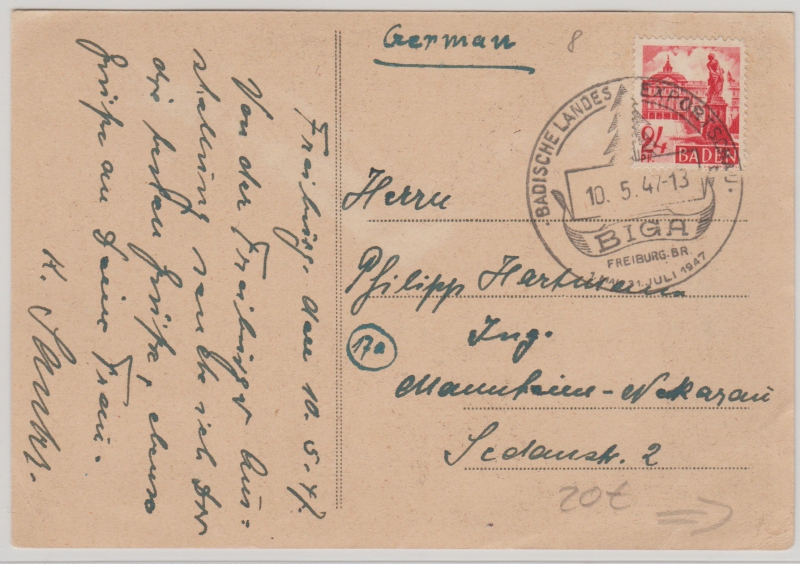 Freiburg, den 10.5.47.
Von der Freiburger Aus-
stellung sende ich Dir
die besten Grüße, ebenso
Grüße an Deine Frau.
K.
German
8
24
PF.
BADEN
BADISCHE LANDES
10.5.47-13
BIGA
FREIBURG.BR.
JULI 1947
Herrn
Philipp Hartmann
Ing.
17a
Mannheim-Nekarau
Sedanstr. 2
20€